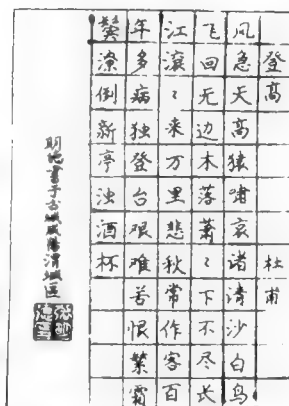 登高 杜甫
风急天高猿啸哀诸清沙白鸟
飞回无边木落萧〻下不尽长
江滚〻来万里悲秋常作客百
年多病独登台艰难苦恨繁霜
鬓潦倒新亭浊酒杯
明書于古城咸陽渭城區